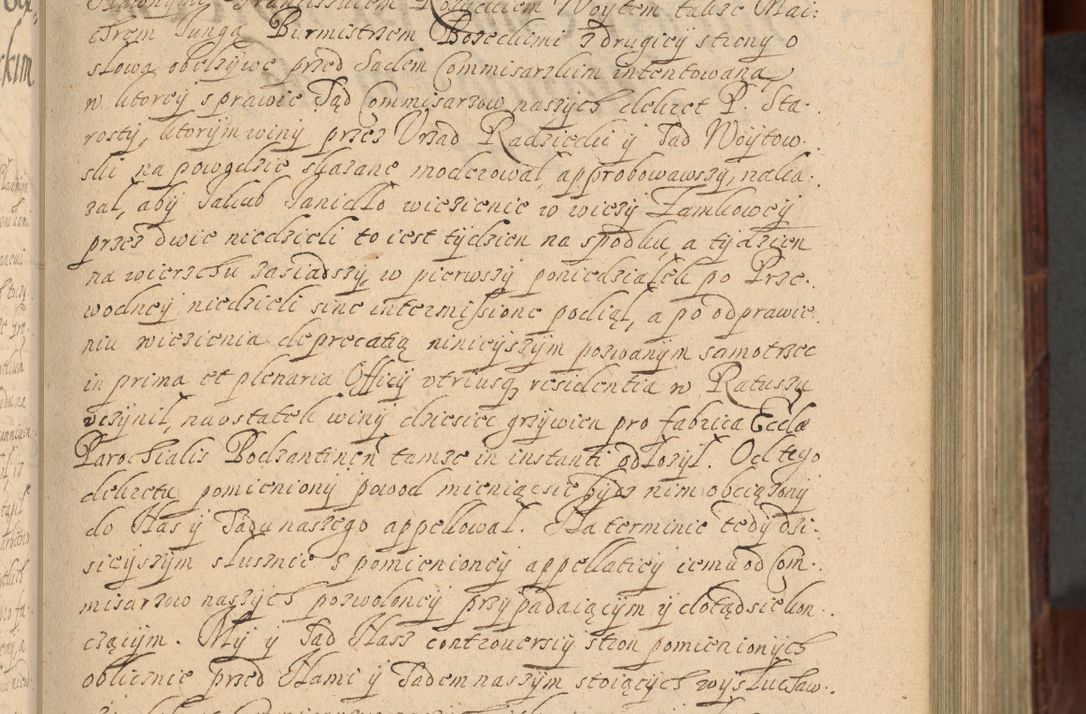 Franciszkiem Kołaczkiem Woytem także Mai:
chrem Jungą Burmistrzem Bozeckimi z drugiey strony o
słowa obelżywe przed Sądem Commisarskim intentowaną,
w ktorey sprawie Sąd Commisarzow naszych dekret P. Sta-
rosty, ktorym winy przez Urząd Radziecki y Sąd Woytow-
ski na powodzie skazane moderował, approbowawszy, naka-
zał, aby Jakub Janidło wiezienie w wieży Zamkowey
przez dwie niedzieli to iest tydzien na spodku, a tydzien
na wierzchu zasiadszy, w pierwszy poniedziałek po Prze-
wodney niedzieli sine intermissione podiął, a po odprawie-
niu wiezienia deprecatią ninieyszym pozwanym samotrzec
in prima et plenaria Officij utriusq residentia w Ratuszu
uczynił, na ostatek winy dziesiec grzywien pro fabrica Eccla
Parochialis Bodzantinen tamze in instanti odłożył. Od tego
dekretu pomieniony powod mieniąc sie bydz nim obciążony
do Nas y Sądu naszego appellował. Na terminie tedy dzi-
sieyszym słusznie z pomienioney appellatiey iemu od Com-
misarzow naszych pozwoloney przypadaiącym y dotąd sie kon-
czącym. My y Sąd Nasz controversiy stron pomienionych
oblicznie przed Nami y Sądem naszym stoiących wysłuchaw-